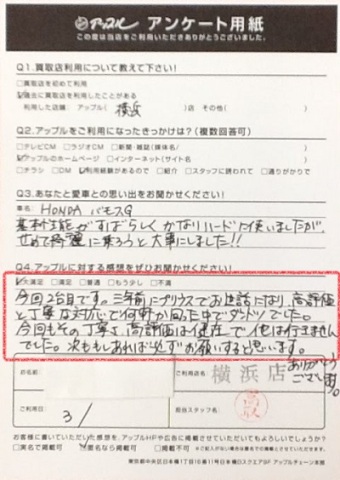 アップル アンケート用紙
この度は当店をご利用いただきありがとうございました。
Q1.買取店利用について教えて下さい!
□買取店を初めて利用
☑過去に買取店を利用したことがある
利用した店舗: アップル( 横浜 )店 その他( )
Q2.アップルをご利用になったきっかけは?(複数回答可)
□テレビCM □ラジオCM □新聞・雑誌(媒体名/ )
☑アップルのホームページ □インターネット(サイト名 )
□チラシ □DM ☑利用経験があるので □紹介 □スタッフに誘われて □通りがかりで
Q3.あなたと愛車との思い出をお聞かせください!
車名: HONDA バモスG
基本性能がすばらしく かなりハードに使いましたが、
せめて綺麗に乗ろうと大事にしました!!
Q4.アップルに対する感想をぜひお聞かせください!
☑大満足 □満足 □普通 □もう少し □不満
今回2台目です。三年前にプリウスでお世話になり、高評価
と丁寧な対応で何軒か回った中でダントツでした。
今回もその丁寧さ、高評価は健在で、他は行きません
でした。次ももしあれば必ずお願いすると思います。
ありがとう
ございます。
お名前
ご利用店 横浜店
ご利用日 3/
担当スタッフ名
お客様に書いていただいた感想を、アップルHPや広告に掲載させていただいてもよろしいでしょうか?
□実名で掲載可 ☑匿名なら掲載可 □掲載不可
東京都中央区日本橋1丁目19番1号日本橋ダイヤビル アップルチェーン本部